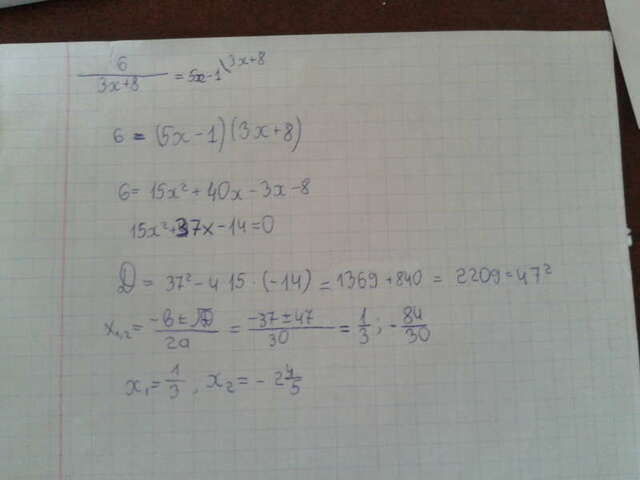 6/(3x+8) = 5x-1 | 3x+8
6 = (5x-1)(3x+8)
6 = 15x²+40x-3x-8
15x²+37x-14=0
D = 37²-4·15·(-14) = 1369+840 = 2209=47²
x₁,₂ = (-b±√D)/2a = (-37±47)/30 = 1/3; -84/30
x₁=1/3; x₂=-2 4/5